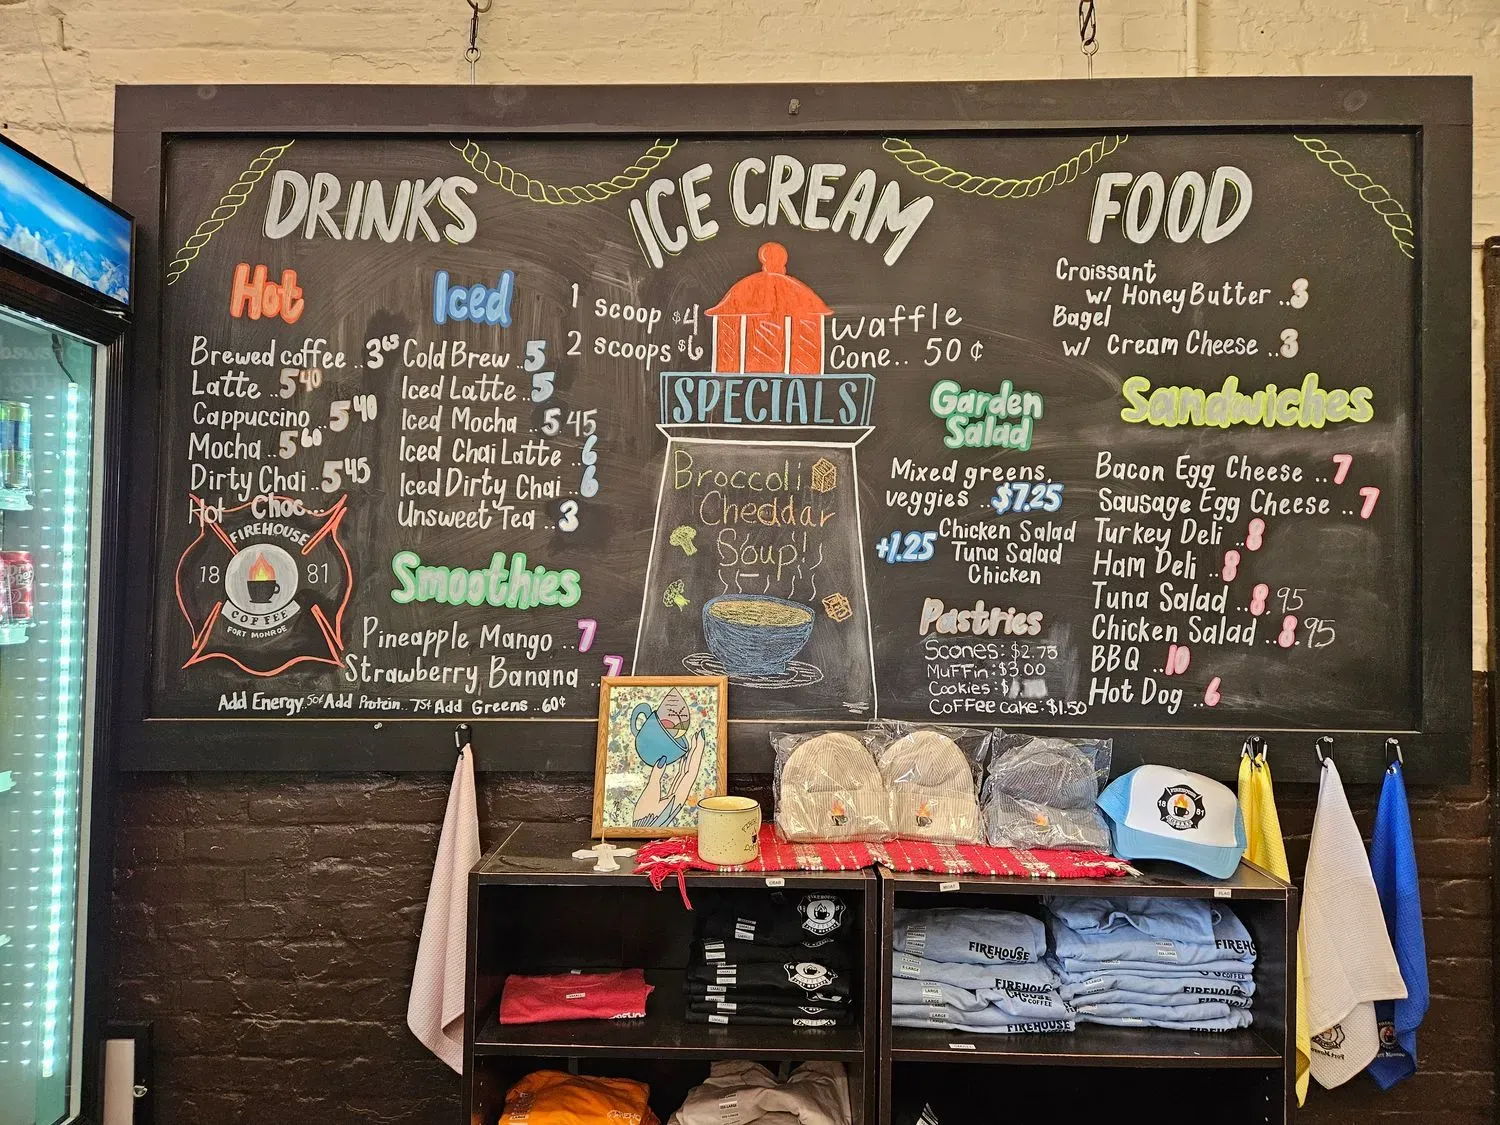 DRINKS
Hot
Brewed coffee ..3 65
Latte ..5 40
Cappuccino ..5 40
Mocha ..5 60
Dirty Chai ..5 45
Hot Choc...
FIREHOUSE
18 81
COFFEE
FORT MONROE
Iced
Cold Brew ..5
Iced Latte ..5
Iced Mocha ..5 45
Iced Chai Latte ..6
Iced Dirty Chai ..6
Unsweet Tea ..3
Smoothies
Pineapple Mango ..7
Strawberry Banana ..7
Add Energy. 50¢ Add Protein.. 75¢ Add Greens ..60¢
ICE CREAM
1 scoop $4
2 scoops $6
Waffle
Cone.. 50¢
SPECIALS
Broccoli
Cheddar
Soup!
Garden
Salad
Mixed greens,
veggies ..$7.25
+1.25 Chicken Salad
Tuna Salad
Chicken
Pastries
Scones: $2.75
Muffin: $3.00
Cookies: $
Coffee cake: $1.50
FOOD
Croissant
w/ Honey Butter ..3
Bagel
w/ Cream Cheese ..3
Sandwiches
Bacon Egg Cheese ..7
Sausage Egg Cheese ..7
Turkey Deli ..8
Ham Deli ..8
Tuna Salad ..8.95
Chicken Salad ..8.95
BBQ ..10
Hot Dog ..6
FIREHOUSE
18 81
COFFEE
FIREHOUSE
FIREHOUSE
COFFEE
FIREHOUSE